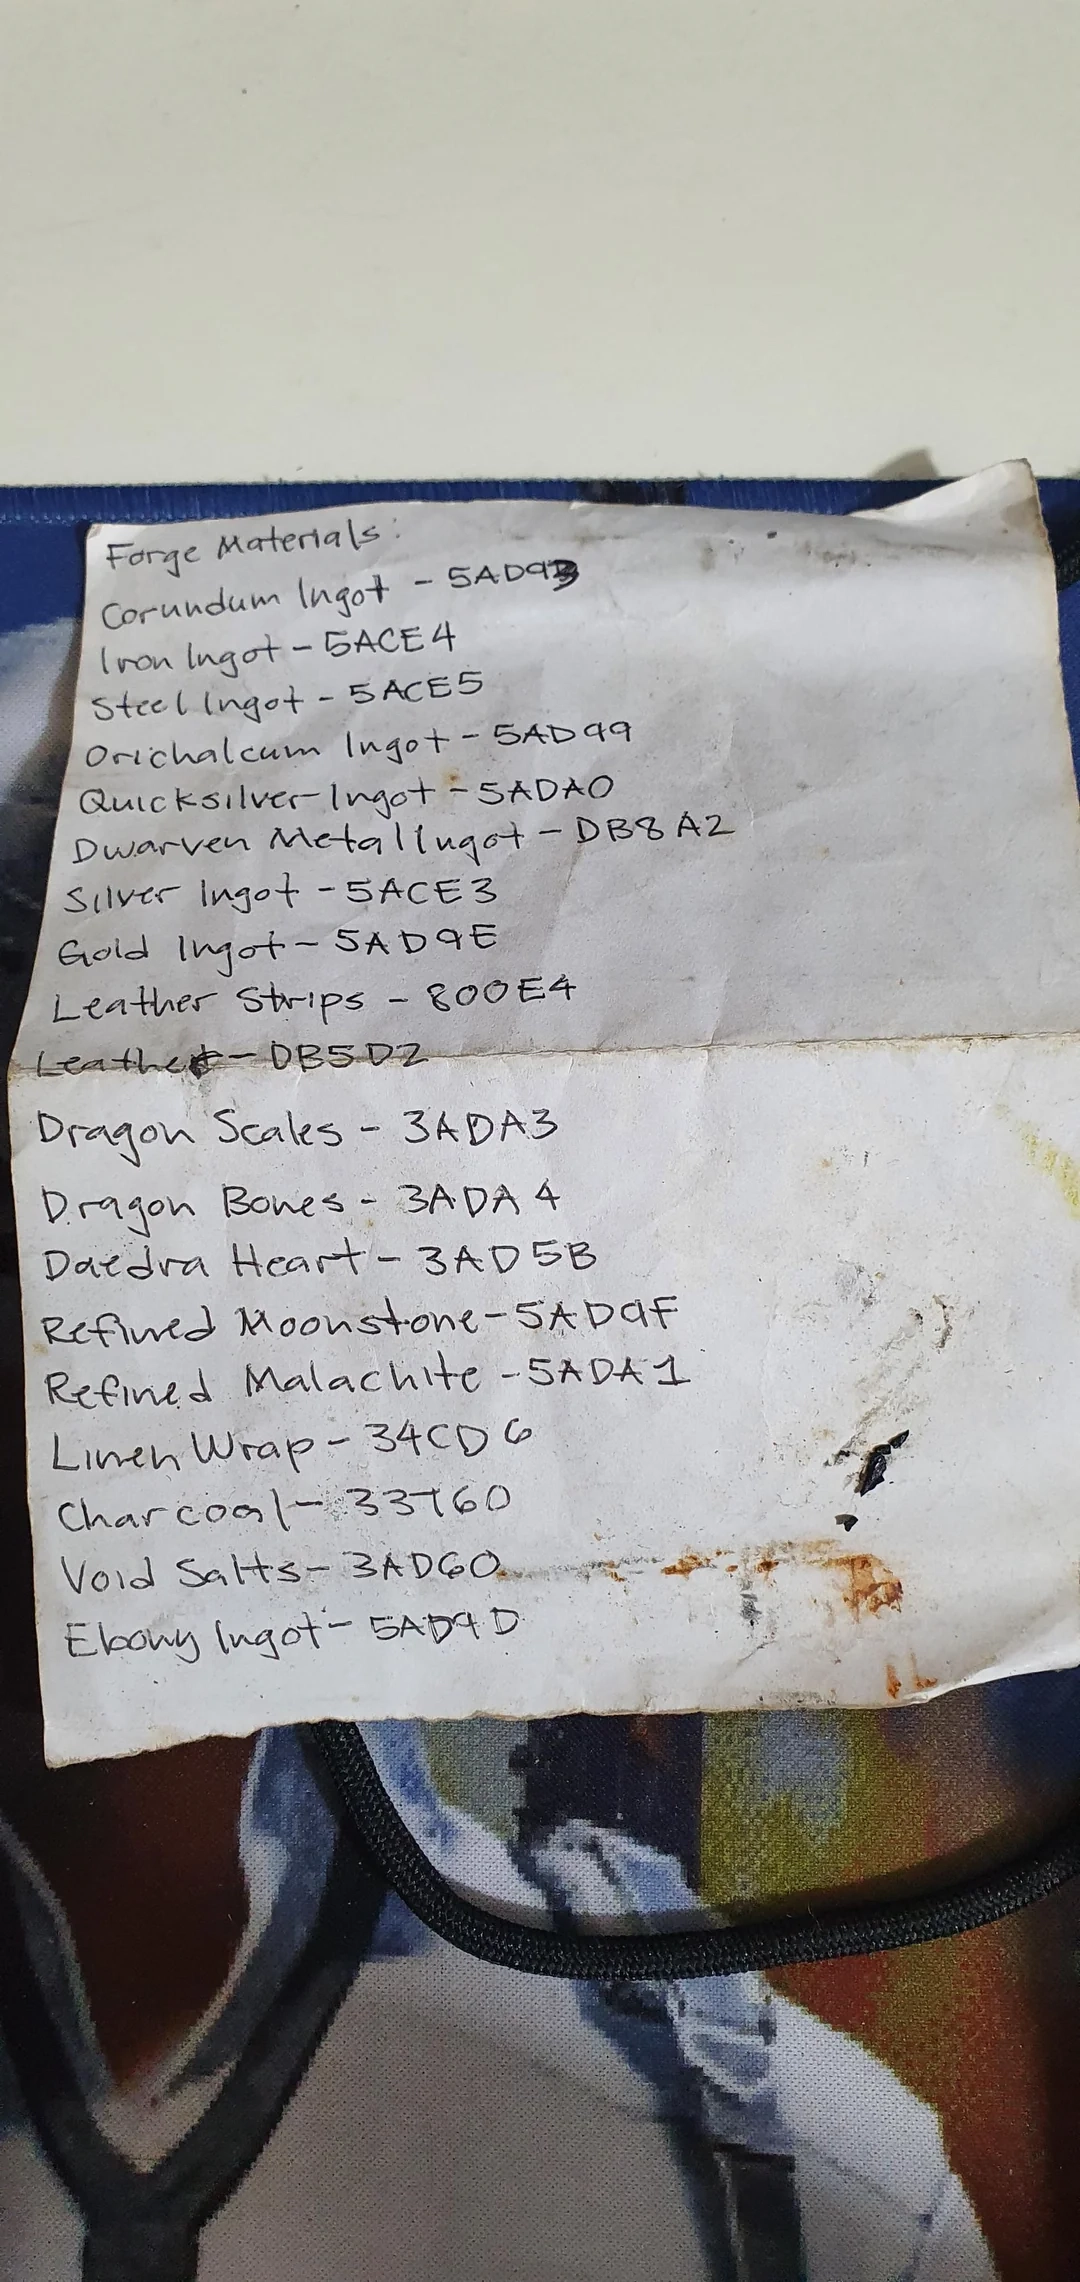 Forge Materials:
Corundum Ingot - 5AD93
Iron Ingot - 5ACE4
Steel Ingot - 5ACE5
Orichalcum Ingot - 5AD99
Quicksilver Ingot - 5ADA0
Dwarven Metal Ingot - DB8A2
Silver Ingot - 5ACE3
Gold Ingot - 5AD9E
Leather Strips - 800E4
Leather - DB5D2
Dragon Scales - 3ADA3
Dragon Bones - 3ADA4
Daedra Heart - 3AD5B
Refined Moonstone - 5AD9F
Refined Malachite - 5ADA1
Linen Wrap - 34CD6
Charcoal - 33760
Void Salts - 3AD60
Ebony Ingot - 5AD9D